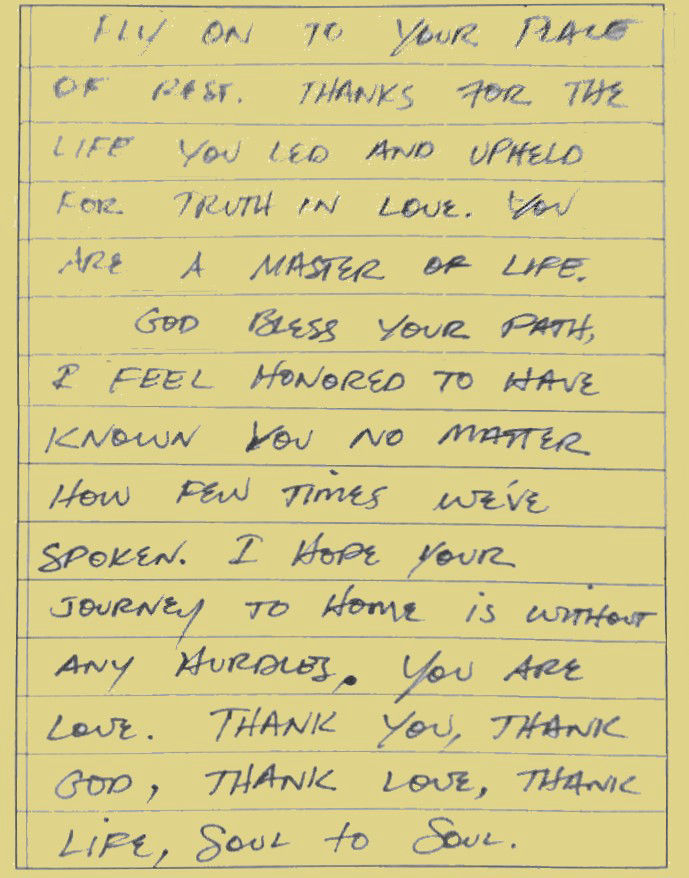 FLY ON TO YOUR PLACE
OF REST. THANKS FOR THE
LIFE YOU LED AND UPHELD
FOR TRUTH IN LOVE. YOU
ARE A MASTER OF LIFE.
GOD BLESS YOUR PATH,
I FEEL HONORED TO HAVE
KNOWN YOU NO MATTER
HOW FEW TIMES WE'VE
SPOKEN. I HOPE YOUR
JOURNEY TO HOME IS WITHOUT
ANY HURDLES. YOU ARE
LOVE. THANK YOU, THANK
GOD, THANK LOVE, THANK
LIFE, SOUL to SOUL.